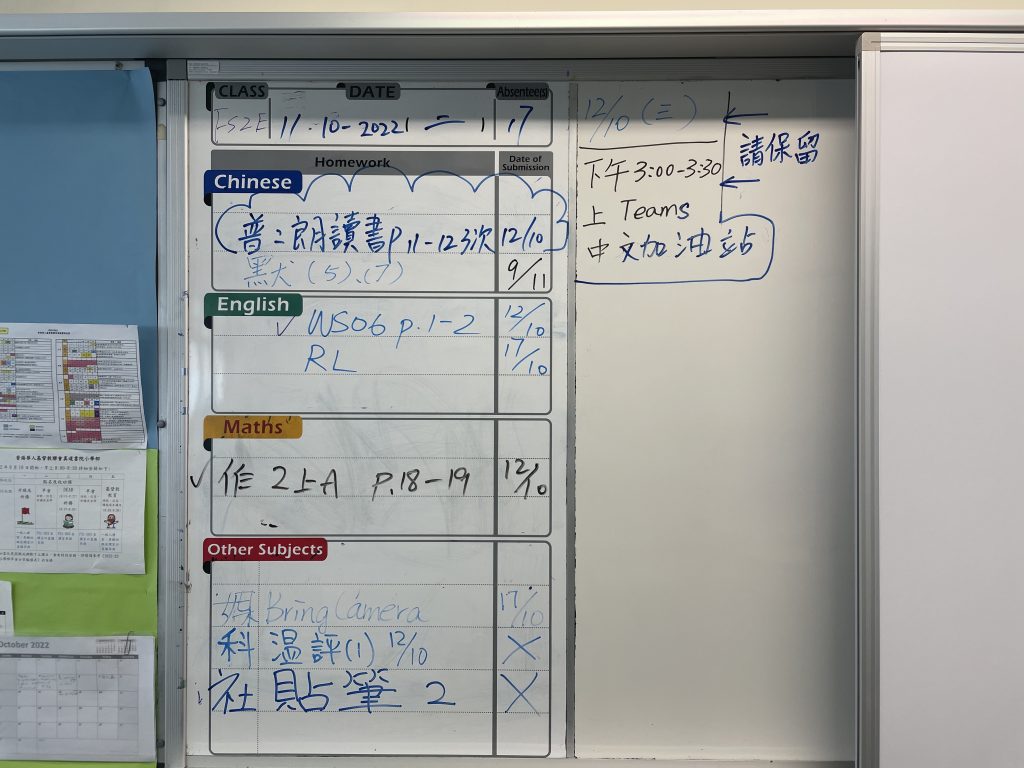 CLASS DATE Absentee(s)
11.10-2022 二 17
Homework Date of Submission
Chinese
普:朗讀書p.11-12 3次 12/10
黑犬(5)、(7) 9/11
English
✓ WS06 p.1-2 12/10
RL 17/10
Maths
✓ 作 2上A P.18-19 12/10
Other Subjects
Bring Camera 17/10
科 溫評(1) 12/10 X
社 貼筆 2 X
12/10 (三)
請保留
下午 3:00-3:30
上 Teams
中文加油站
香港華人基督教聯會真道書院小學部
October 2022